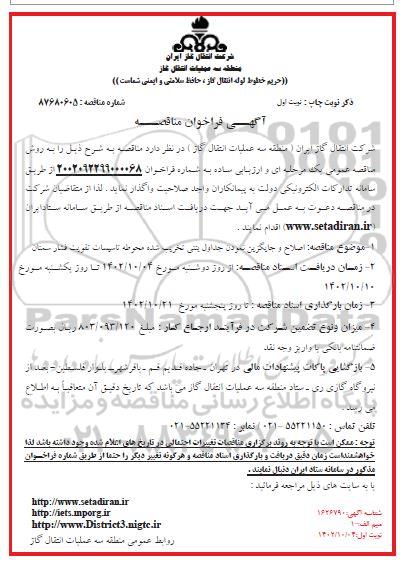 شرکت انتقال گاز ایران
منطقه سه عملیات انتقال گاز
((حریم خطوط لوله انتقال گاز ، حافظ سلامتی و ایمنی شماست))
ذکر نوبت چاپ : نوبت اول
شماره مناقصه : ۸۷۶۸۰۶۰۵
آگهـــی فراخوان مناقصـــه
شرکت انتقال گاز ایران ( منطقه سه عملیات انتقال گاز ) در نظر دارد مناقصه به شرح ذیل را به روش
مناقصه عمومی یک مرحله ای و ارزیابی ساده به شماره فراخوان ۲۰۰۲۰۹۲۲۹۹۰۰۰۰۶۸ از طریق
سامانه تدارکات الکترونیکی دولت به پیمانکاران واجد صلاحیت واگذار نماید . لذا از متقاضیان شرکت
در مناقصه دعوت به عمل می آید جهت دریافت اسناد مناقصه از طریق سامانه ستادایران
(www.setadiran.ir) اقدام نمایند .
۱-موضوع مناقصه: اصلاح و جایگزین نمودن جداول بتنی تخریب شده محوطه تاسیسات تقویت فشار سمنان
۲- زمان دریافت اسناد مناقصه: از روز دوشنبه مورخ ۱۴۰۲/۱۰/۰۴ تا روز یکشنبه مورخ
۱۴۰۲/۱۰/۱۰
۳- زمان بارگذاری اسناد مناقصه : تا روز پنجشنبه مورخ ۱۴۰۲/۱۰/۲۱
۴- میزان ونوع تضمین شرکت در فرآیند ارجاع کار : مبلغ ۸۰۳/۰۹۳/۱۲۰ ریال بصورت
ضمانتنامه بانکی یا واریز وجه نقد
۵- بازگشایی پاکات پیشنهادات مالی در تهران - جاده قدیم قم - باقرشهر- بلوار فلسطین- بعد از
نیروگاه گازی ری - ستاد منطقه سه عملیات انتقال گاز می باشد که تاریخ دقیق آن متعاقباً به اطلاع
می رسد .
تلفن تماس : ۵۵۲۲۱۱۵۰-۰۲۱ / نمابر : ۵۵۲۲۱۱۳۴-۰۲۱
توجه : ممکن است با توجه به روند برگزاری مناقصات تغییرات احتمالی در تاریخ های اعلام شده وجود داشته باشد لذا
خواهشمنداست زمان دقیق دریافت و بارگذاری اسناد مناقصه و هرگونه تغییر دیگر را حتما از طریق شماره فراخوان
مذکور در سامانه ستاد ایران دنبال نمایند .
یا به سایت های ذیل مراجعه فرمائید :
http://www.setadiran.ir
http://iets.mporg.ir
http://www.District3.nigtc.ir
شناسه آگهی: ۱۶۲۶۷۹۰
میم الف:۱۰۰
نوبت اول:۱۴۰۲/۱۰/۰۴
روابط عمومی منطقه سه عملیات انتقال گاز